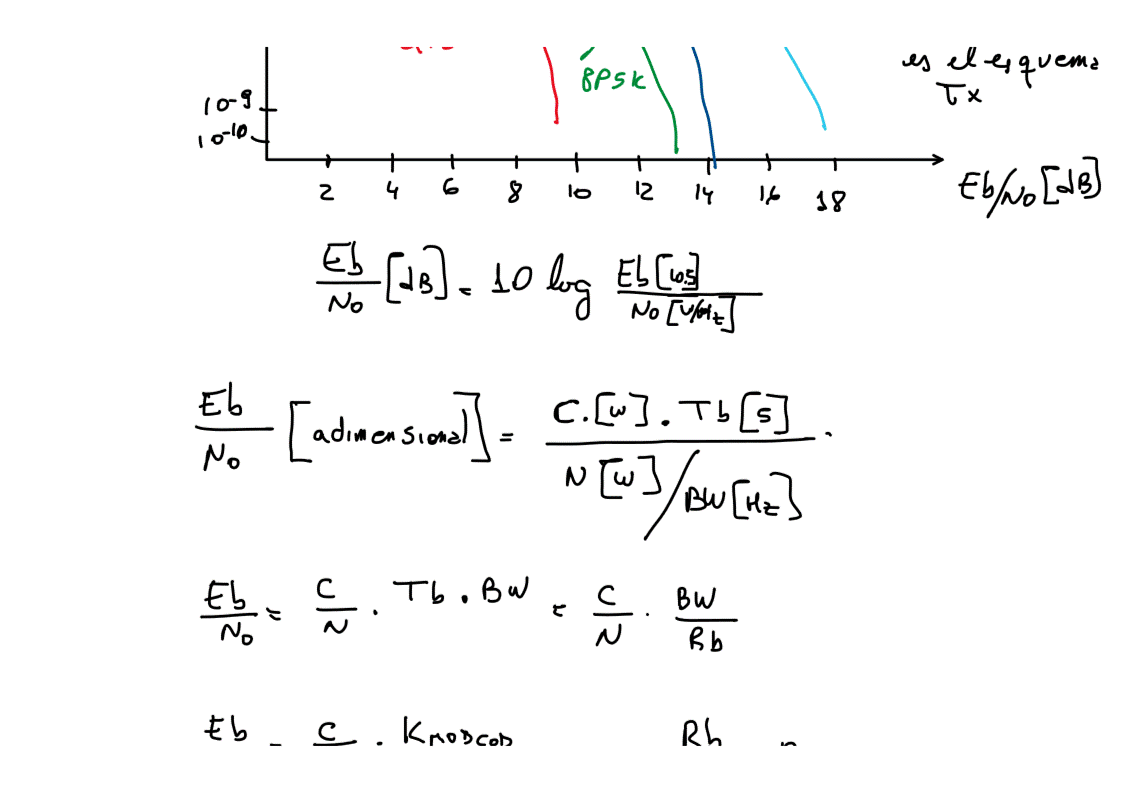 es el esquema
Tx
BPSK
10-9
10-10
2 4 6 8 10 12 14 16 18
Eb/No [dB]
Eb/No [dB] = 10 log Eb[W.S] / No [W/Hz]
Eb/No [adimensional] = C.[W] . Tb[S] / N[W]/BW[Hz] .
Eb/No = C/N . Tb . BW = C/N . BW/Rb
Eb = C . KMODCOD Rb